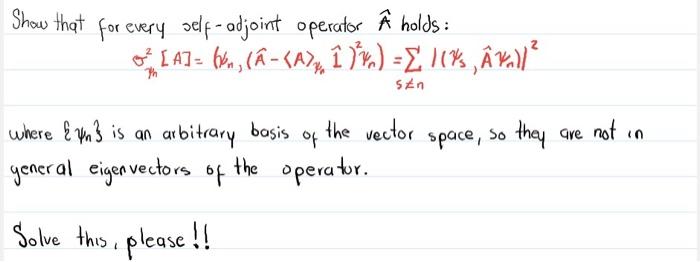 Show that for every self-adjoint operator Â holds:
σ²_ψn [A] = (ψn, (Â - <A>_ψn 1̂)²ψn) = Σ_{s≠n} |(ψs, Âψn)|²
where {ψn} is an arbitrary basis of the vector space, so they are not in
general eigenvectors of the operator.
Solve this, please!!